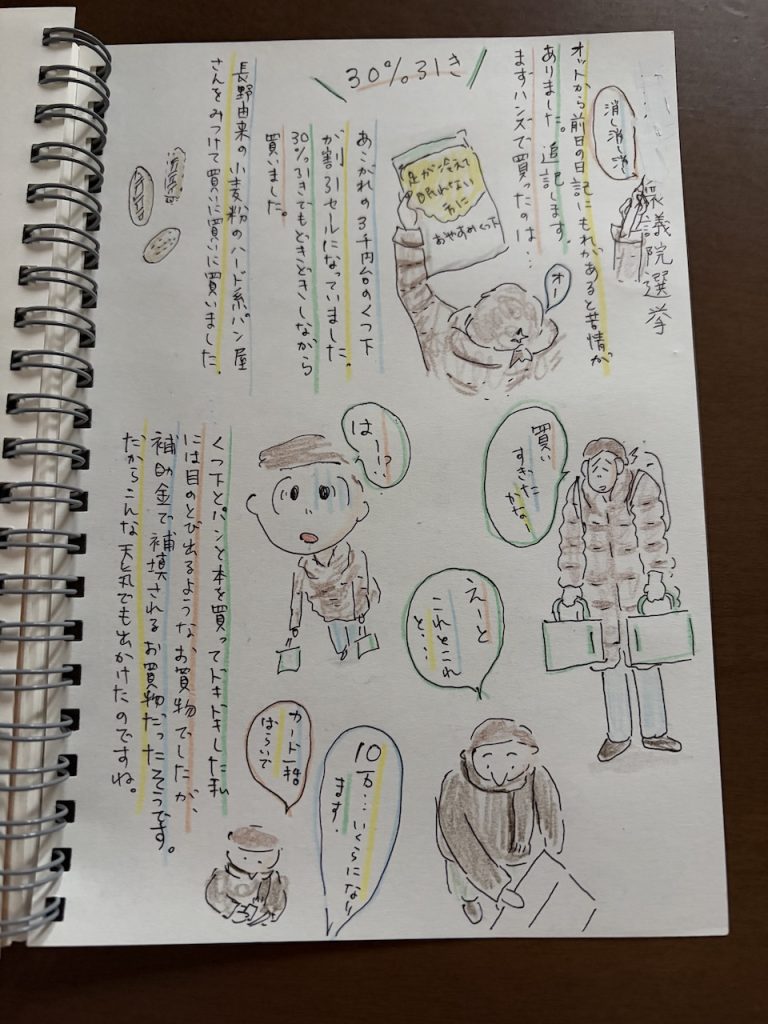 衆議院選挙
消し消し消
オットから前日の日記にもれがあると苦情が
ありました。追記します。
まずハンズで買ったのは…
30%引き
足が冷えて
眠れない
方に
おやすめくつ下
オー
あこがれの3千円台のくつ下
が割引セールになっていました。
30%引きでもどきどきしながら
買いました。
長野由来の小麦粉のハード系パン屋
さんをみつけて買いに買いに買いました。
買い
すぎた
かな
はーっ?
えーと
これとこれ
と…
くつ下とパンと本を買ってドキドキした私
には目のとび出るような、お買物でしたが、
補助金で補填されるお買物だったそうです。
だからこんな天気でも出かけたのですね。
10万…いくらになり
ます。
カード一括
ばらいで